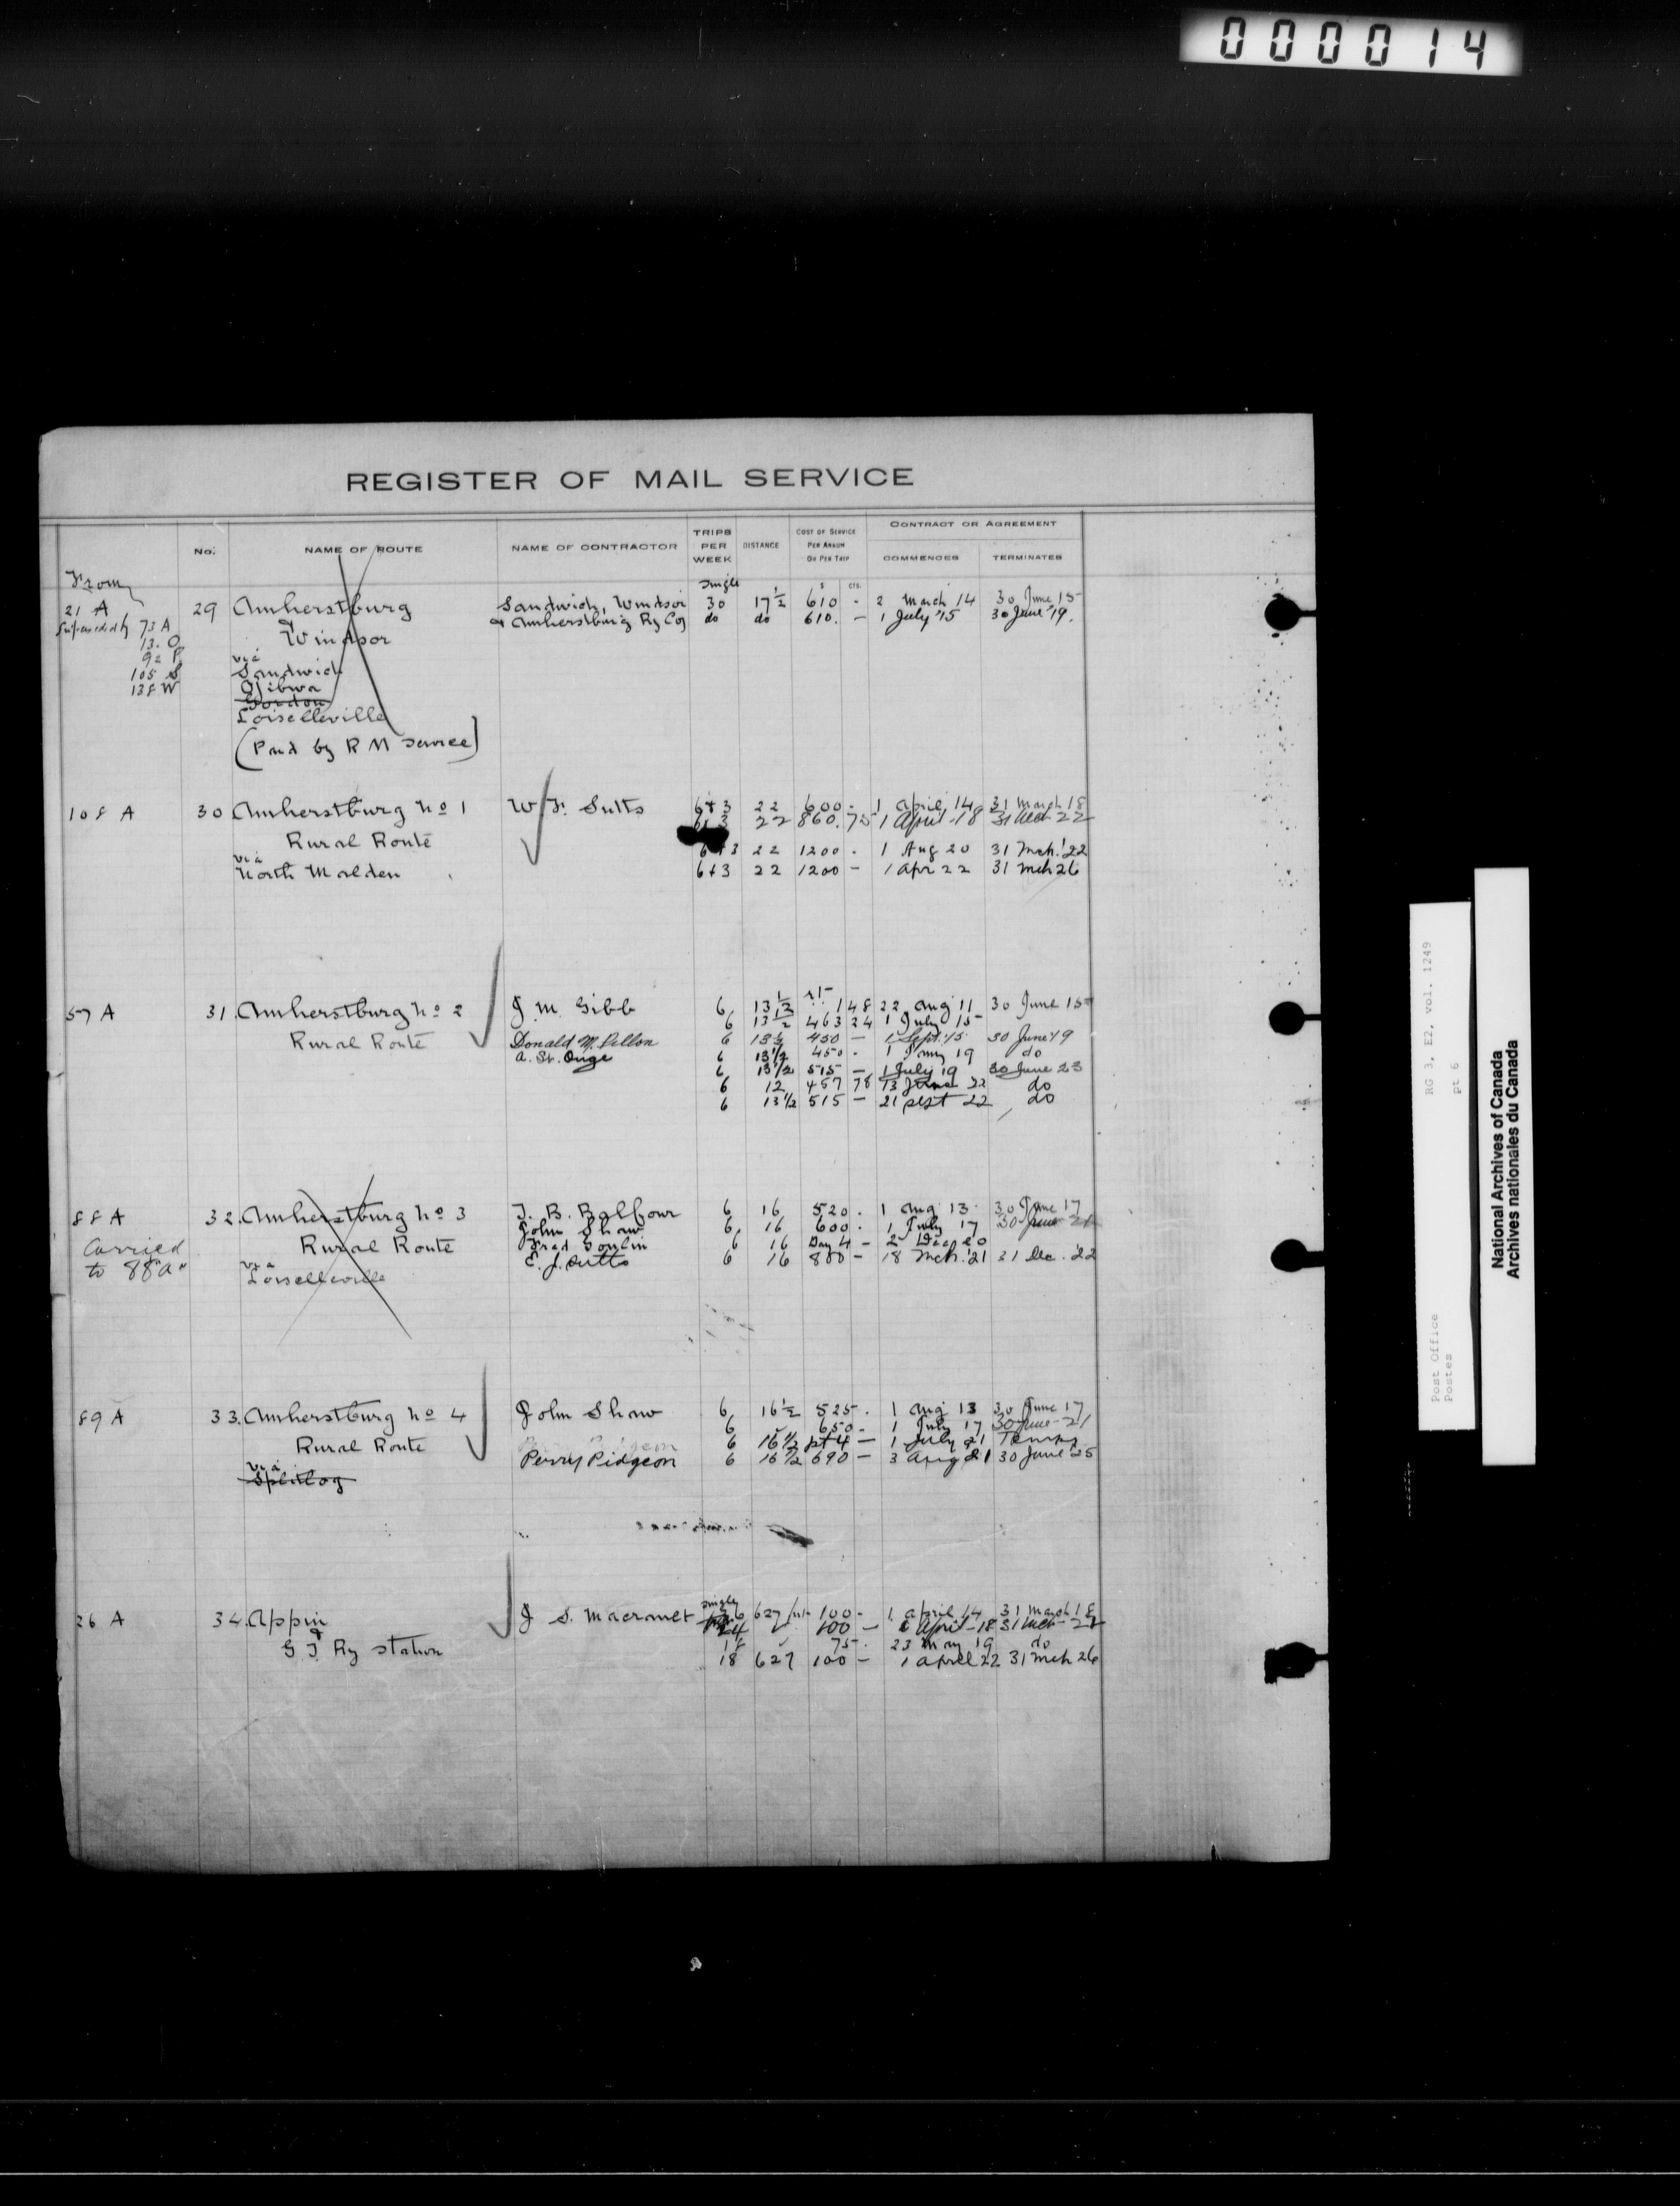 000014
REGISTER OF MAIL SERVICE
No. NAME OF ROUTE NAME OF CONTRACTOR TRIPS PER WEEK DISTANCE COST OF SERVICE PER ANNUM OR PER TRIP CONTRACT OR AGREEMENT COMMENCES TERMINATES
From single $ cts.
21 A 29 Amherstburg Sandwich, Windsor 30 17 1/2 610 - 2 March 14 30 June 15
73 A & & Amherstburg Ry Coy do do 610. — 1 July '15 30 June '19.
13. O Windsor
92 P. via
105 S Sandwich
138 W Ojibwa
Gordon
Loiselleville
(Paid by R M Service)
108 A 30 Amherstburg No 1 W. F. Sutts 6+3 22 600 - 1 April, 14 31 March 18
6+3 22 860. 75 1 April - 18 31 Mch 22
Rural Route 6+3 22 1200 - 1 Aug 20 31 Mch. '22
via
North Malden 6+3 22 1200 — 1 Apr 22 31 Mch 26
57 A 31. Amherstburg No 2 J. M. Gibb 6 13 1/2 1 48 22 Aug 11 30 June 15
6 13 1/2 463 24 1 July 15
Rural Route Donald M. Pillon 6 13 1/2 450 — 1 Sept. '15 30 June '19
A. St. Onge 6 13 1/2 450 - 1 19 do
6 13 1/2 515 — 1 July 19 30 June 23
6 12 457 78 13 June 22 do
6 13 1/2 515 — 21 sept 22 do
88 A 32. Amherstburg No 3 T. B. Balfour 6 16 520 - 1 Aug 13 30 June 17
Carried John Shaw 6 16 600 - 1 July 17 30 June 21
to 88 "A" Rural Route Fred Goulin 6 16 Day 4 — 2 Dec 20
via E. J. Sutts 6 16 800 — 18 Mch. '21 31 Dec. '22
Loiselleville
89 A 33. Amherstburg No 4 John Shaw 6 16 1/2 525 - 1 Aug 13 30 June 17
6 650 - 1 July 17 30 June - 21
Rural Route 6 16 1/2 4 — 1 July 21 Tempy
Perry Pidgeon 6 16 1/2 690 — 3 Aug 21 30 June 25
via
Splitlog
26 A 34. Appin J. S. Macrauet single 627 100 - 1 April 14 31 March 18
& 24 100 — 1 April - 18 31 Mch - 22
G T Ry Station 18 75 - 23 May 19 do
18 627 100 — 1 April 22 31 Mch 26
RG 3, E2, vol. 1249
pt 6
Post Office
Postes
National Archives of Canada
Archives nationales du Canada